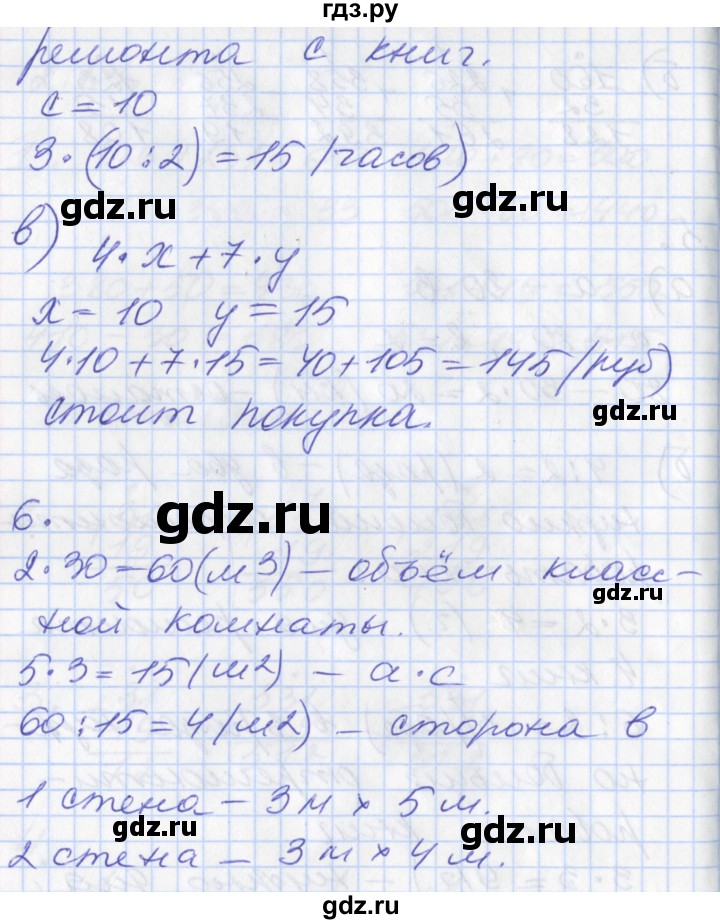 гдз.ру
ремонта с книг.
с = 10
3·(10:2) = 15 (часов)
gdz.ru gdz.ru
в) 4·x + 7·y
x = 10 y = 15
4·10 + 7·15 = 40 + 105 = 145 (руб)
стоит покупка.
gdz.ru
gdz.ru
6.
2·30 = 60 (м3) – объём класс-
gdz.ru
ной комнаты.
5·3 = 15 (м2) – а·с
60:15 = 4 (м2) – сторона в
1 стена – 3м × 5м.
gdz.ru gdz.ru
2 стена – 3м × 4м.
gdz.ru